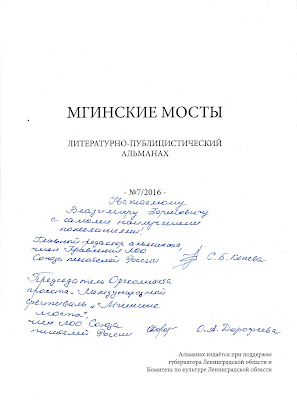 МГИНСКИЕ МОСТЫ
ЛИТЕРАТУРНО-ПУБЛИЦИСТИЧЕСКИЙ
АЛЬМАНАХ
- №7/2016 -
Уважаемому
Владимиру Борисовичу
с самыми наилучшими
пожеланиями!
Главный редактор альманаха,
член Правления ЛОО
Союза писателей России С. Б. Конева
Председатель Оргкомитета
проекта "Международный
фестиваль "Мгинские
мосты",
член ЛОО Союза
писателей России О. А. Дорофеева
Альманах издаётся при поддержке
губернатора Ленинградской области и
Комитета по культуре Ленинградской области